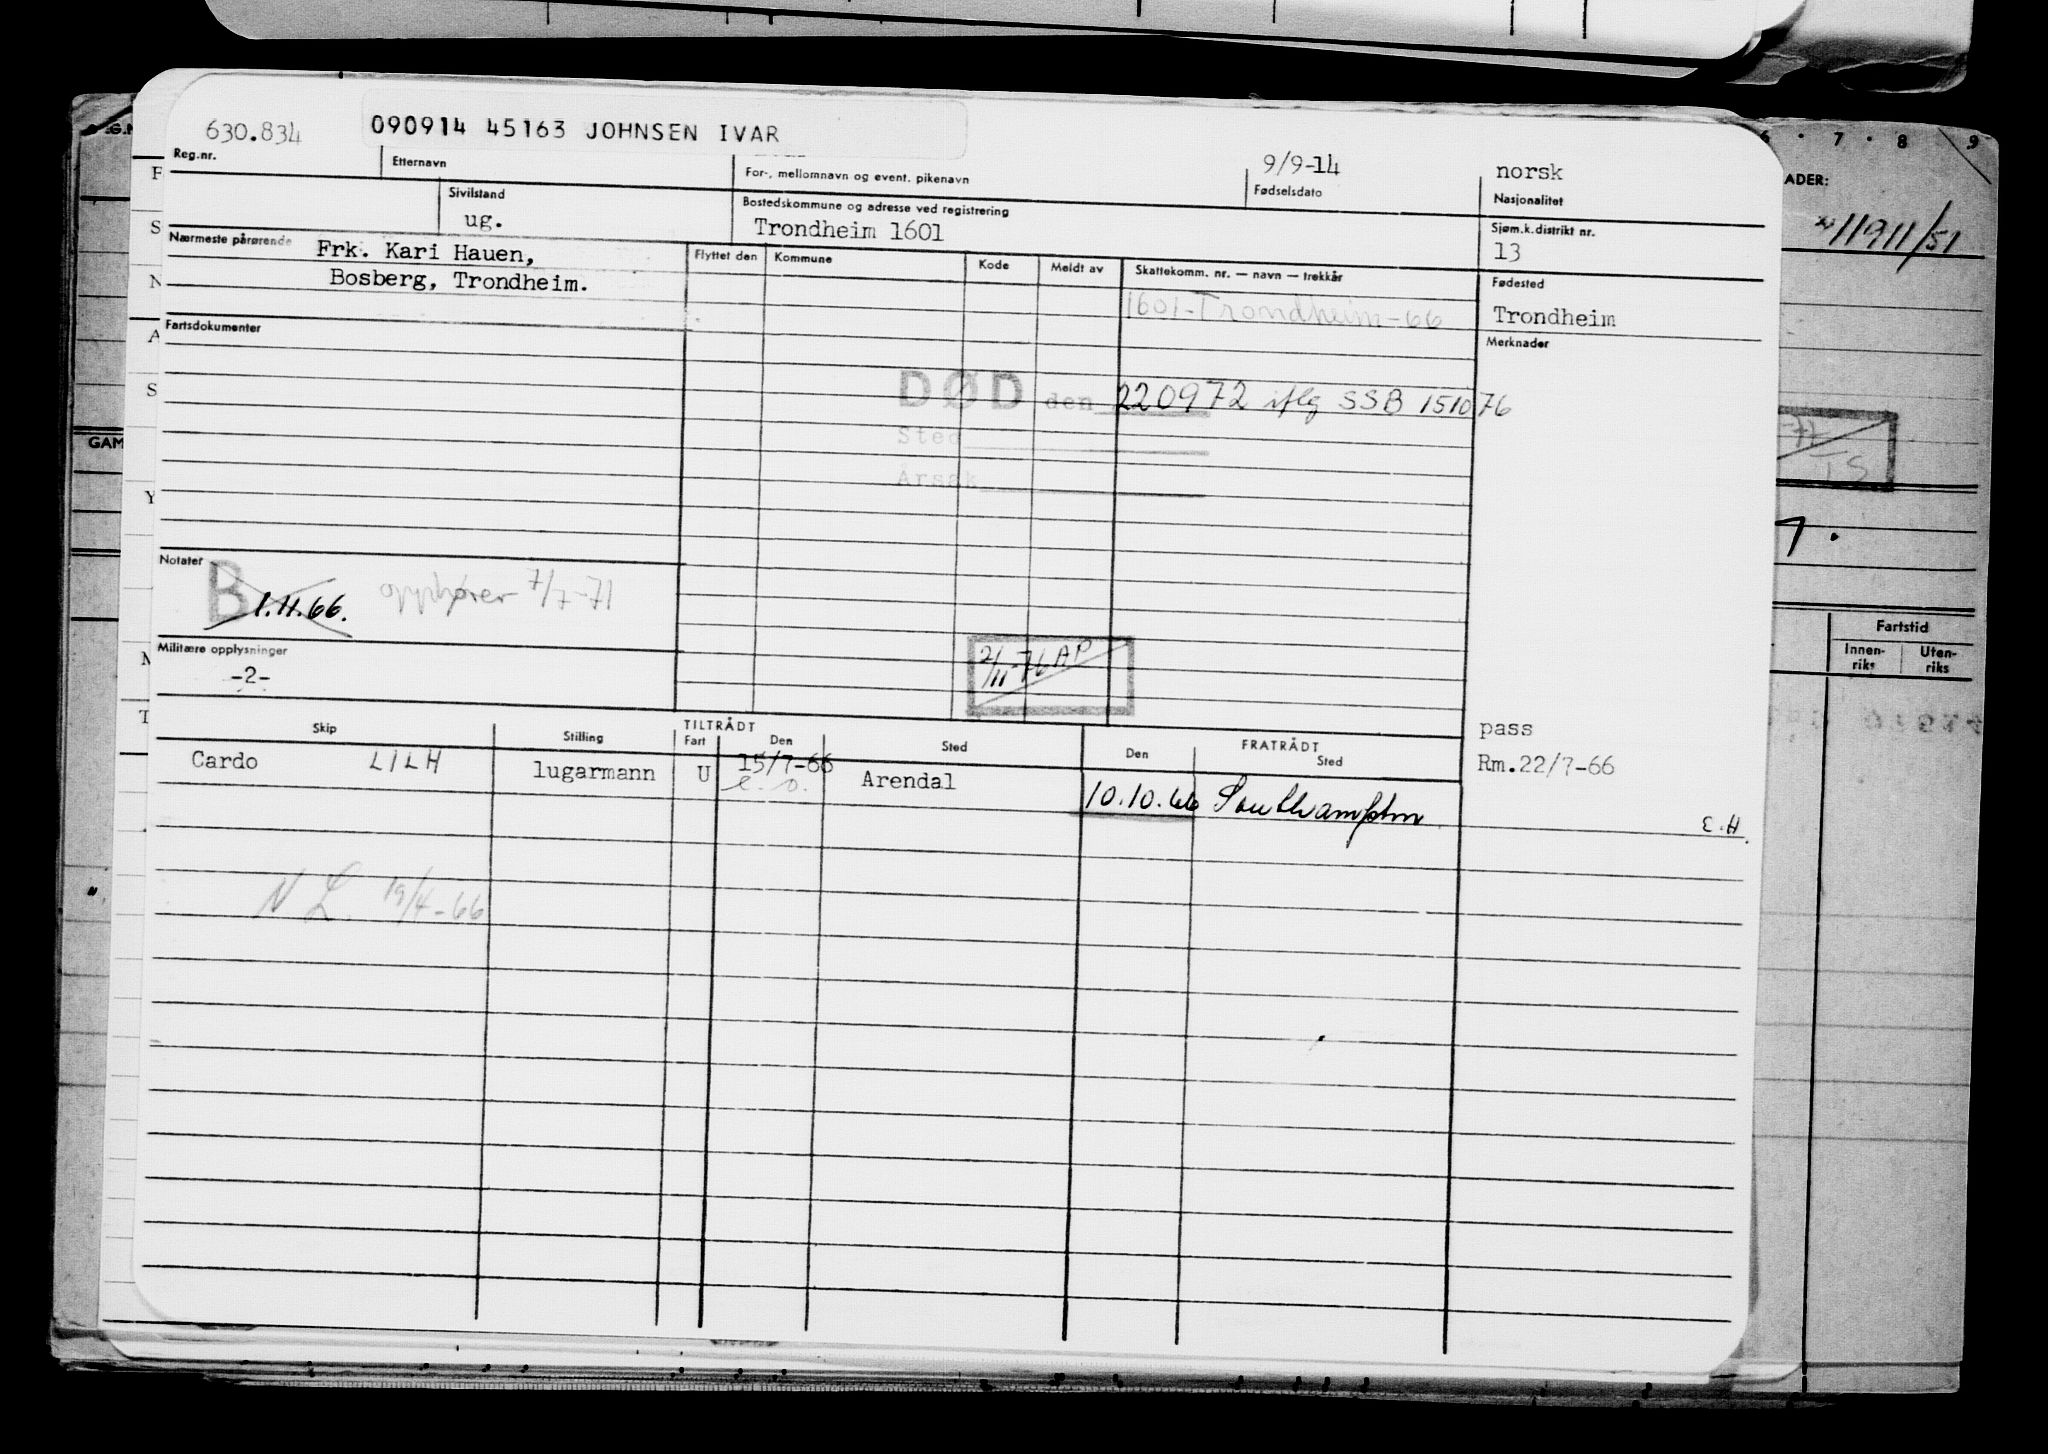 630.834 090914 45163 JOHNSEN IVAR 9/9-14 norsk
Reg.nr. Etternavn For-, mellomnavn og event. pikenavn Fødselsdato Nasjonalitet
Sivilstand Bostedskommune og adresse ved registrering Sjøm.k.distrikt nr.
ug. Trondheim 1601 13
Nærmeste pårørende Frk. Kari Hauen,
Bosberg, Trondheim.
Flyttet den Kommune Kode Meldt av Skattekomm. nr. — navn — trekkår Fødested
1601-Trondheim-66 Trondheim
Fartsdokumenter Merknader
DØD den 220972 iflg SSB 151076
Sted
Årsak
Notater
B 1.11.66. opphører 7/7-71
Militære opplysninger
-2-
2/11-76 AP
Skip Stilling TILTRÅDT Fart Den Sted FRATRÅDT Den Sted
pass
Cardo LILH lugarmann U 15/7-66 Arendal 10.10.66 Southampton Rm.22/7-66
e. o.
E.H.
N L. 19/4-66
6 . 7 . 8 9
ADER:
11911/51
TS
GAM
Fartstid
Innen-riks Uten-riks